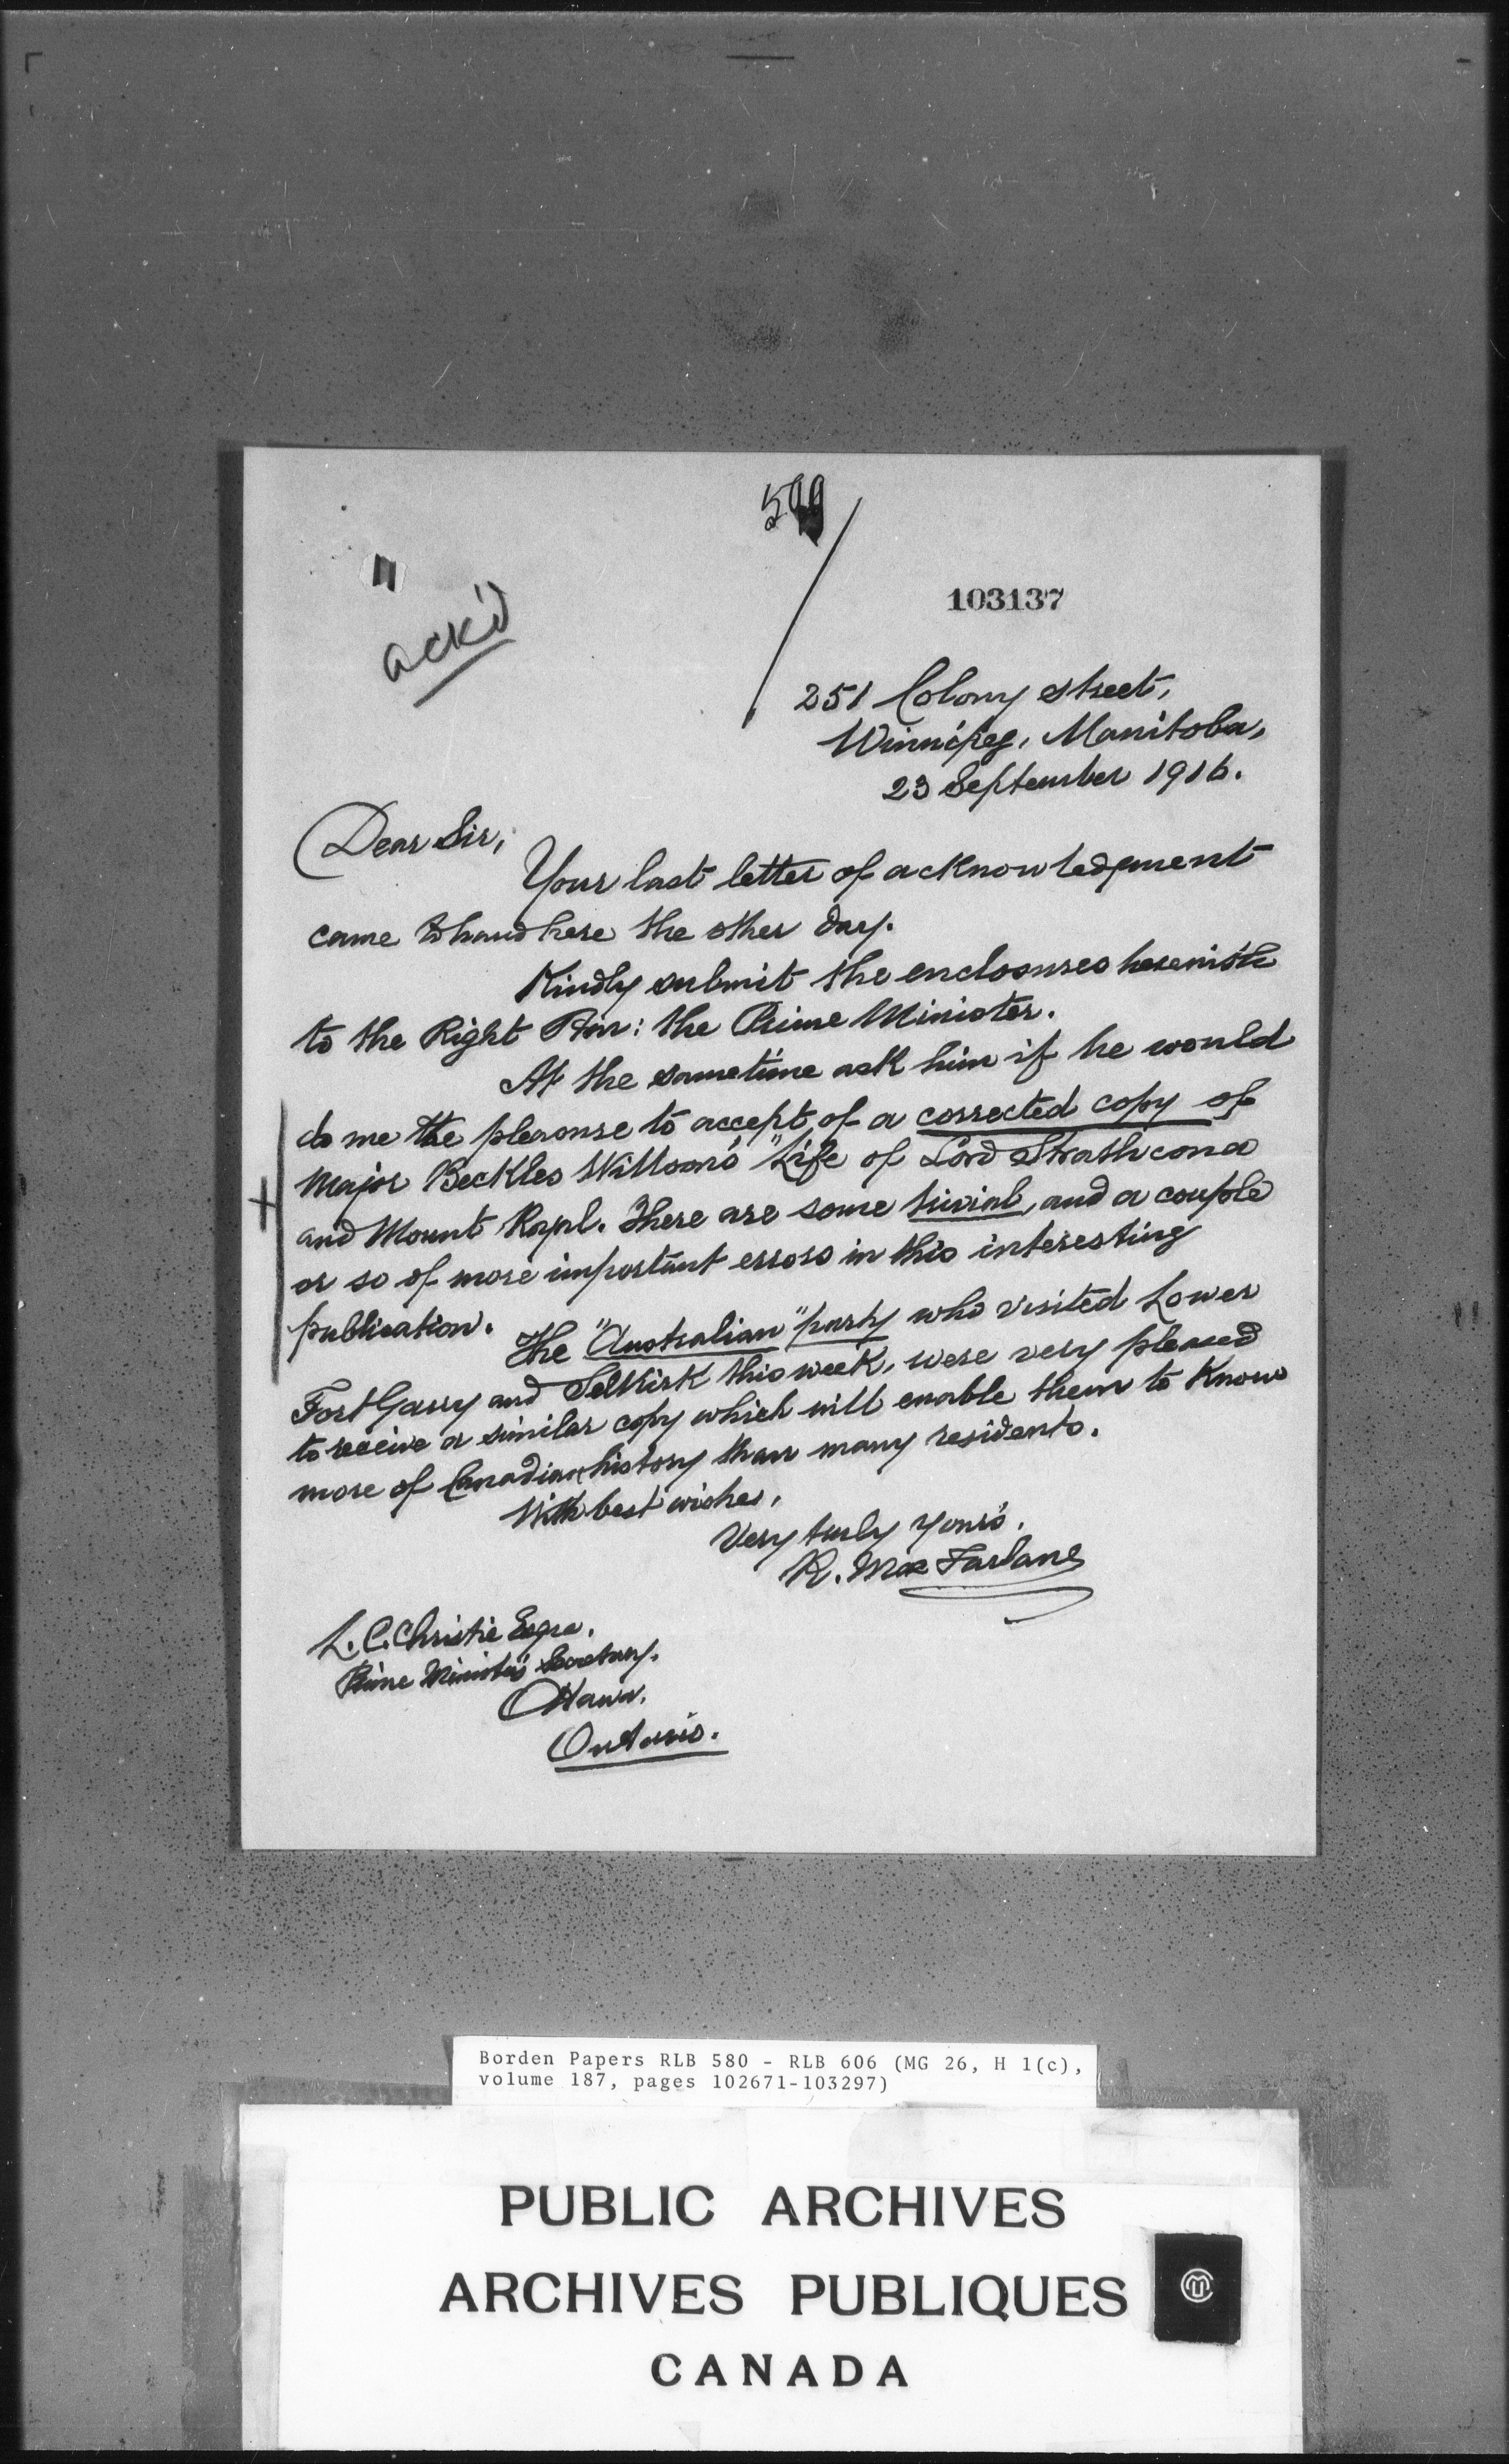 599
103137
ack'd
251 Colony street,
Winnipeg, Manitoba,
23 September 1916.
Dear Sir,
Your last letter of acknowledgment
came to hand here the other day.
Kindly submit the enclosures herewith
to the Right Hon: the Prime Minister.
At the sametime ask him if he would
do me the pleasure to accept of a corrected copy of
Major Beckles Willson's "Life of Lord Strathcona
and Mount Royal. There are some trivial, and a couple
or so of more important errors in this interesting
publication.
The "Australian" party who visited Lower
Fort Garry and Selkirk this week, were very pleased
to receive a similar copy which will enable them to know
more of Canadian history than many residents.
With best wishes,
Very truly yours,
R. MacFarlane
L. C. Christie Esqre.
Prime Minister's Secretary.
Ottawa.
Ontario.
Borden Papers RLB 580 - RLB 606 (MG 26, H 1(c),
volume 187, pages 102671-103297)
PUBLIC ARCHIVES
ARCHIVES PUBLIQUES
CANADA